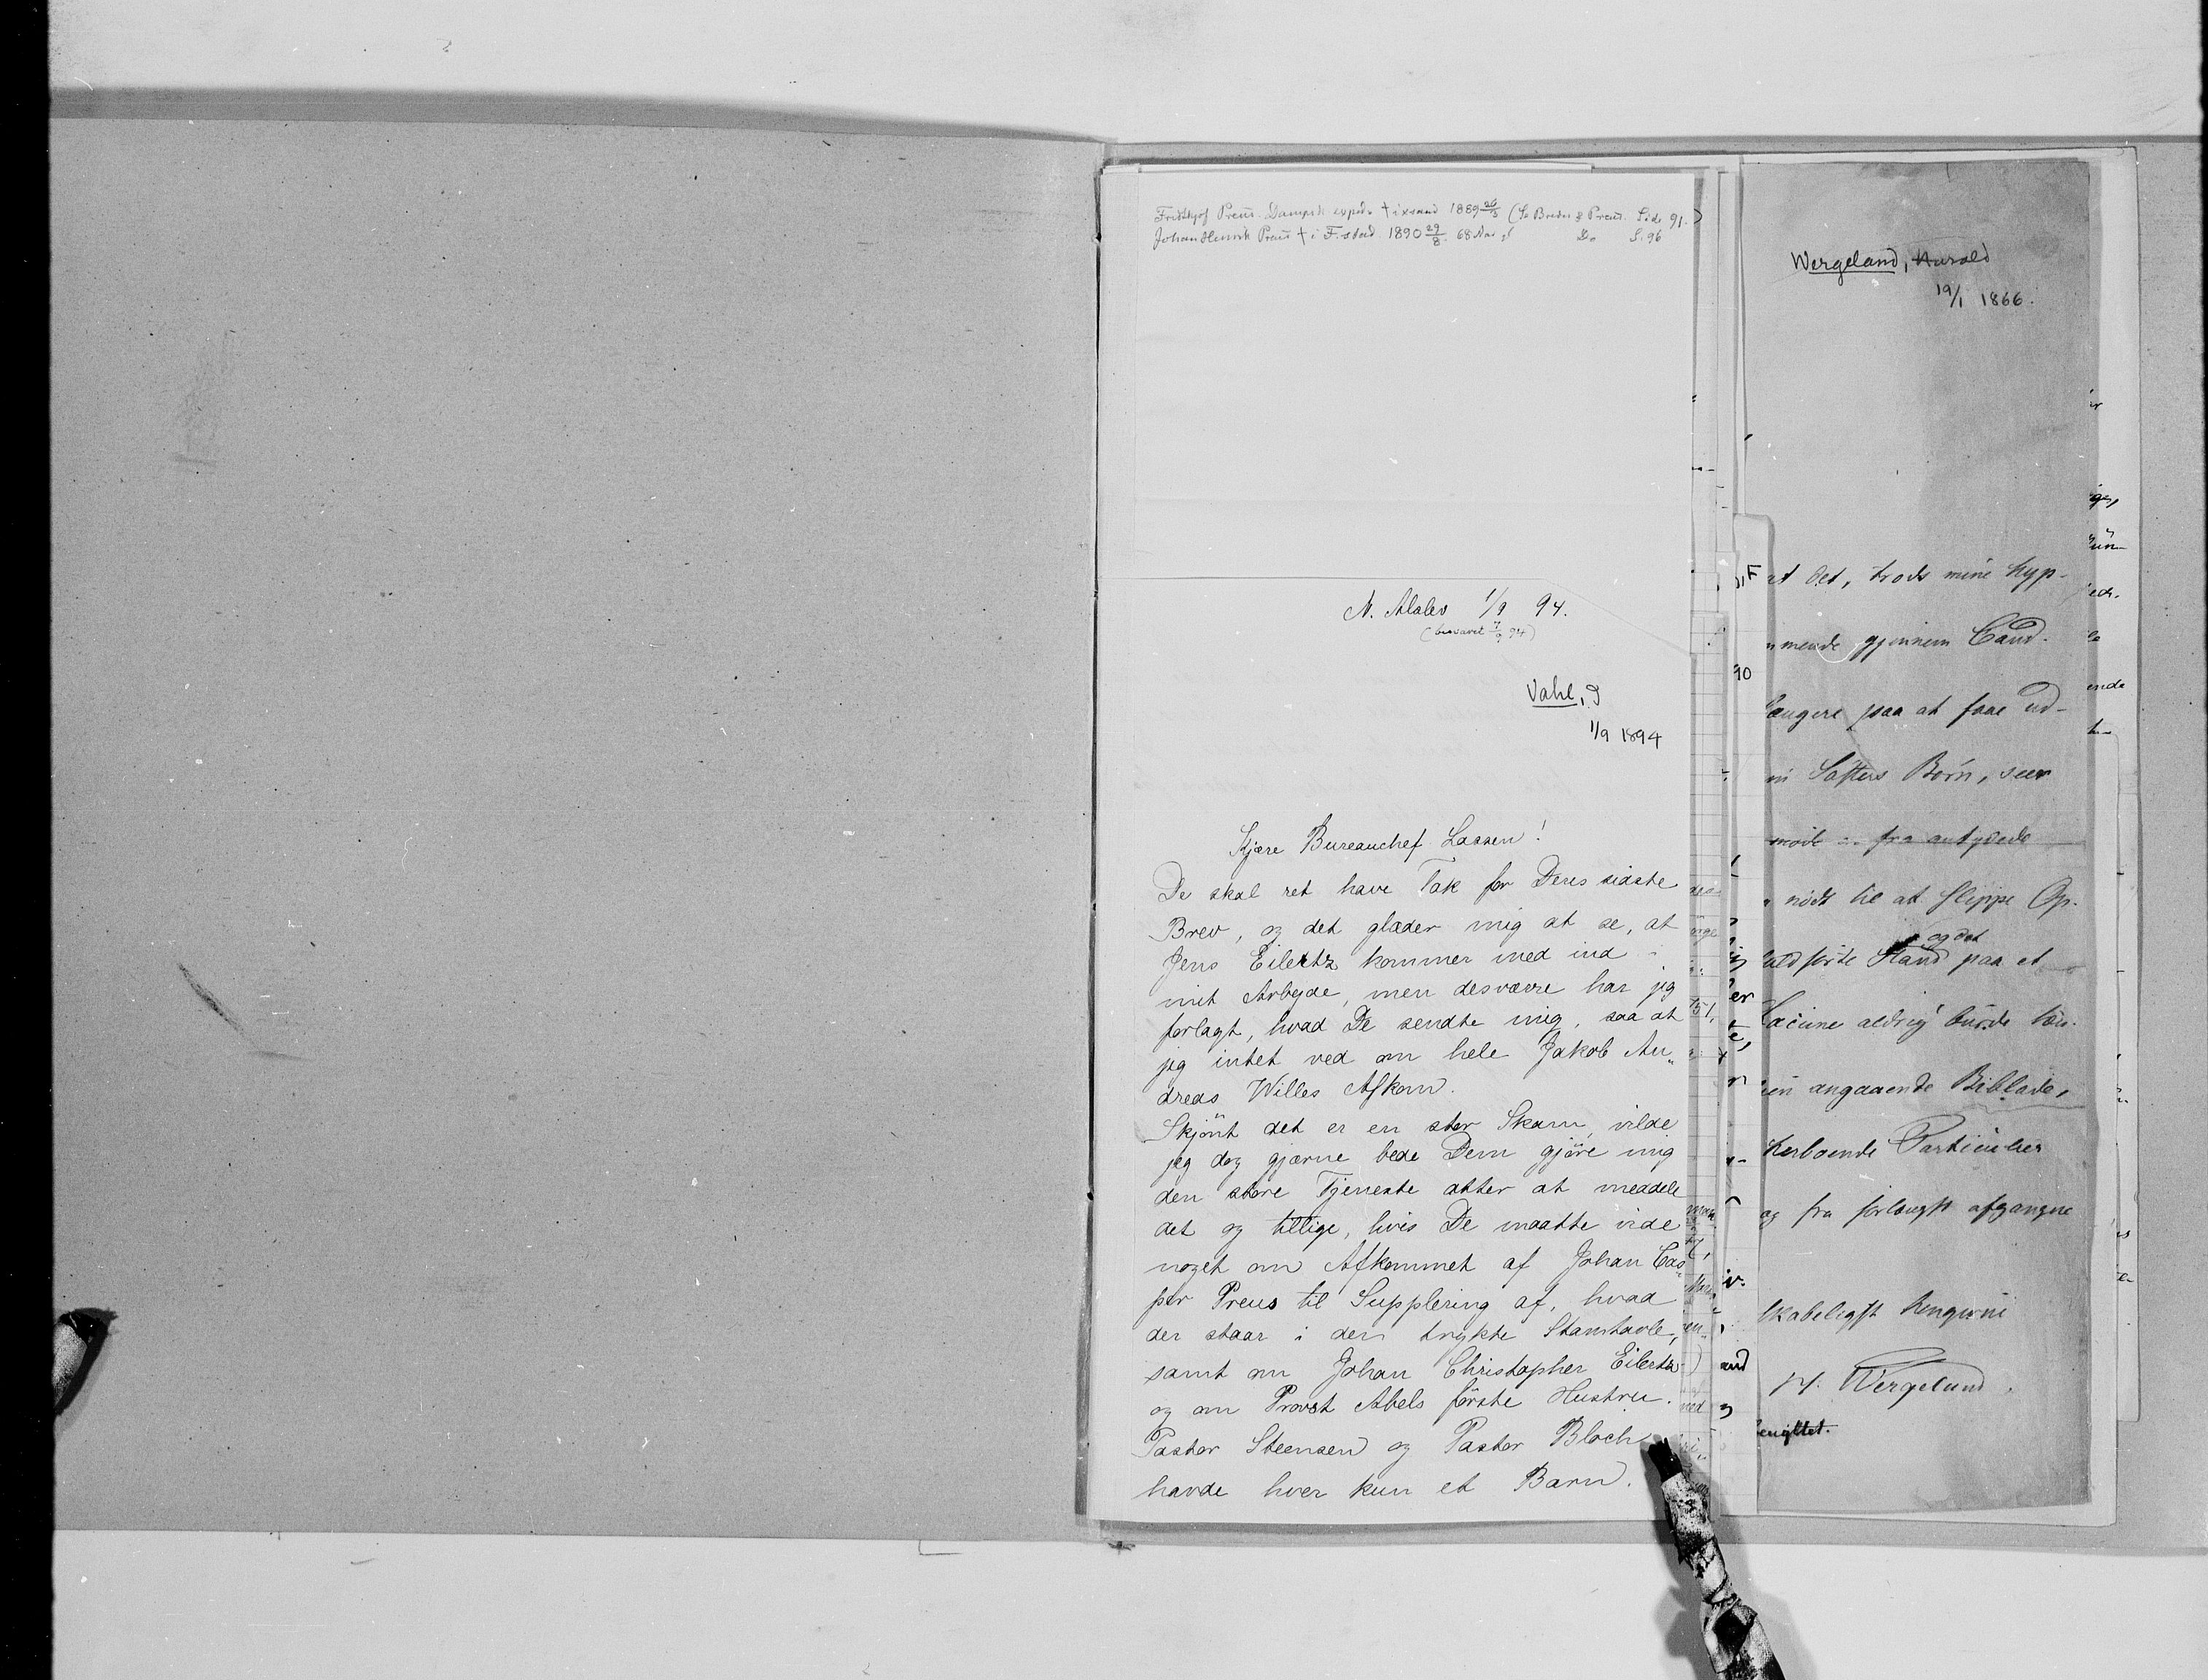 Fridthjof Preus. Dampsk. exped. † i xsand 1889 26/5 (Se Breder & Preus. Sid. 91.)
Johan Henrik Preus † i F.stad 1890 29/8. 68 Aar gl Do S. 96
N. Alslev 1/9 94.
(besvaret 7/9 94)
Vahl, J
1/9 1894
Kjære Bureauchef Lassen!
De skal ret have Tak for Deres sidste
Brev, og det glæder mig at se, at
Jens Eilertz kommer med ind i
mit Arbejde, men desværre har jeg
forlagt, hvad De sendte mig, saa at
jeg intet ved om hele Jakob An„
dreas Willes Afkom.
Skjönt det er en stor Skam, vilde
jeg dog gjærne bede Dem gjöre mig
den store Tjeneste atter at meddele
det og tillige, hvis De maatte vide
noget om Afkommet af Johan Cas„
per Preus til Supplering af, hvad
der staar i den trykte Stamtavle,
samt om Johan Christopher Eilertz
og om Provst Abels förste Hustru.
Pastor Steensen og Pastor Bloch
havde hver kun et Barn.
Wergeland, Harald
19/1 1866.
at det, trods mine hyp-
mmende gjennem Cand.
længere paa at faae ud-
Søsters Børn, seer
fra antydede
nødt til at slippe Op-
og det
Haand paa et
Lacune aldrig burde
angaaende Biblade,
herboende Particulier
og fra forlængst afgangne
skabeligst hengivne
H. Wergeland.
benyttet.